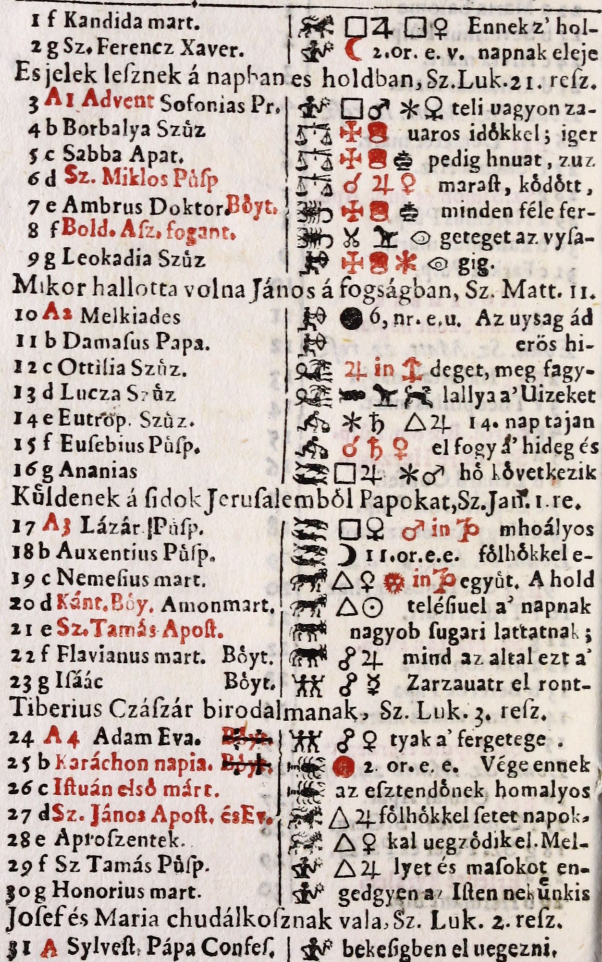 1 f Kandida mart. □♃ □♀ Ennek z' hol-
2 g Sz. Ferencz Xaver. ☾ 2. or. e. v. napnak eleje
Es jelek leſznek á napban es holdban, Sz. Luk. 21. reſz.
3 A1 Advent Sofonias Pr. □♂ ⚹♀ teli vagyon za-
4 b Borbalya Szůz uaros idókkel; iger
5 c Sabba Apat. pedig hnuat, zuz
6 d Sz. Miklos Půſp ☌ ♃ ♀ maraſt, kódótt,
7 e Ambrus Doktor. Bóyt. minden féle fer-
8 f Bold. Aſz. fogant. geteget az vyſa-
9 g Leokadia Szůz gig.
Mikor hallotta volna János á fogságban, Sz. Matt. 11.
10 A2 Melkiades ● 6, nr. e. u. Az uysag ád
11 b Damaſus Papa. erös hi-
12 c Ottilia Szůz. ♃ in deget, meg fagy-
13 d Lucza Szůz lallya a' Uizeket
14 e Eutrop. Szůz. ⚹ ♄ △♃ 14. nap tajan
15 f Euſebius Půſp. ☌ ♄ ♀ el fogy á' hideg és
16 g Ananias □♃ ⚹♂ hó kóvetkezik
Kůldenek á ſidok Jeruſalemból Papokat, Sz. Jan. 1. re.
17 A3 Lázár Půſp. □♀ ♂ in ♑ mhoályos
18 b Auxentius Půſp. ☽ 11. or. e. e. fólhókkel e-
19 c Nemeſius mart. △ ♀ in ♑ együt. A hold
20 d Kánt. Bóy. Amon mart. △☉ teléſiuel a' napnak
21 e Sz. Tamás Apoſt. nagyob ſugari lattatnak;
22 f Flavianus mart. Bóyt. ☍ ♃ mind az altal ezt a'
23 g Iſáác Bóyt. ☍ ☿ Zarzauatr el ront-
Tiberius Czáſzár birodalmanak, Sz. Luk. 3. reſz.
24 A4 Adam Eva. Bóyt. ☍ ♀ tyak a' fergetege.
25 b Karáchon napia. Bóyt. 2. or. e. e. Vége ennek
26 c Iſtuán elsó márt. az eſztendónek homalyos
27 d Sz. János Apoſt. és Ev. △ ♃ fólhókkel ſetet napok-
28 e Aproſzentek. △ ♀ kal uegzódik el. Mel-
29 f Sz Tamás Půſp. △ ♃ lyet és maſokot en-
30 g Honorius mart. gedgyen az Iſten nekůnkis
Joſef és Maria chudálkoſznak vala, Sz. Luk. 2. reſz.
31 A Sylveſt. Pápa Confeſ. bekeſigben el uegezni.